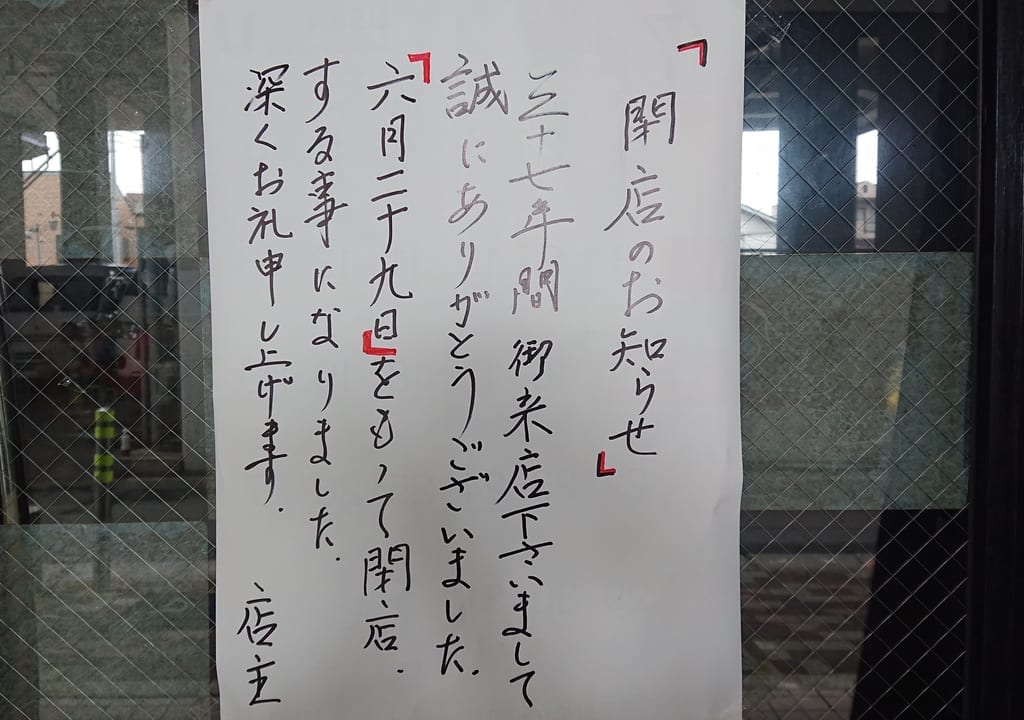 「閉店のお知らせ」
三十七年間御来店下さいまして
誠にありがとうございました.
「六月二十九日」をもって閉店.
する事になりました.
深くお礼申し上げます. 店主